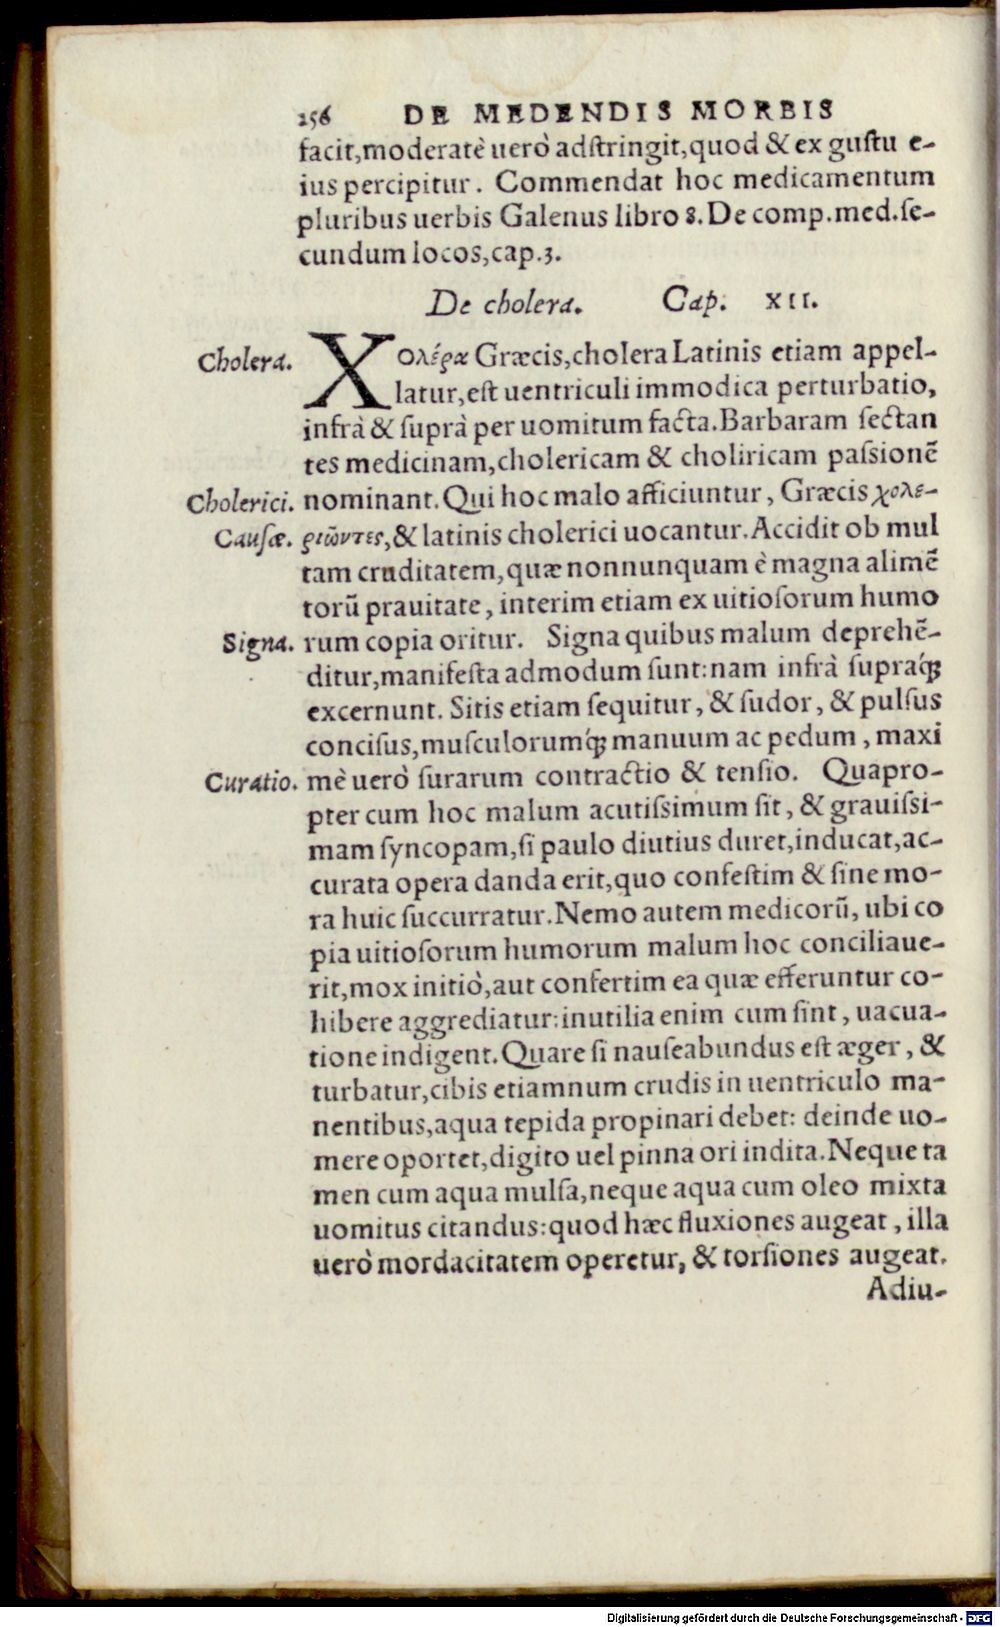 256 DE MEDENDIS MORBIS
facit,moderatè uerò adstringit,quod & ex gustu e-
ius percipitur. Commendat hoc medicamentum
pluribus uerbis Galenus libro 8. De comp.med.se-
cundum locos,cap.3.
De cholera. Cap. XII.
Cholera.
Χολέρα Græcis,cholera Latinis etiam appel-
latur,est uentriculi immodica perturbatio,
infrà & suprà per uomitum facta. Barbaram sectan
tes medicinam,cholericam & choliricam passionē
Cholerici. nominant. Qui hoc malo afficiuntur, Græcis χολε-
Causæ. ριῶντες,& latinis cholerici uocantur. Accidit ob mul
tam cruditatem,quæ nonnunquam è magna alimē
torū prauitate, interim etiam ex uitiosorum humo
Signa. rum copia oritur. Signa quibus malum deprehē-
ditur,manifesta admodum sunt:nam infrà supraq́;
excernunt. Sitis etiam sequitur, & sudor, & pulsus
concisus,musculorumq́; manuum ac pedum, maxi
Curatio. mè uerò surarum contractio & tensio. Quapro-
pter cum hoc malum acutissimum sit, & grauissi-
mam syncopam,si paulo diutius duret,inducat,ac-
curata opera danda erit,quo confestim & sine mo-
ra huic succurratur. Nemo autem medicorū, ubi co
pia uitiosorum humorum malum hoc conciliaue-
rit,mox initiò,aut confertim ea quæ efferuntur co-
hibere aggrediatur:inutilia enim cum sint, uacua-
tione indigent. Quare si nauseabundus est æger, &
turbatur,cibis etiamnum crudis in uentriculo ma-
nentibus,aqua tepida propinari debet: deinde uo-
mere oportet,digito uel pinna ori indita. Neque ta
men cum aqua mulsa,neque aqua cum oleo mixta
uomitus citandus:quod hæc fluxiones augeat, illa
uerò mordacitatem operetur, & torsiones augeat.
Adiu-
Digitalisierung gefördert durch die Deutsche Forschungsgemeinschaft - DFG